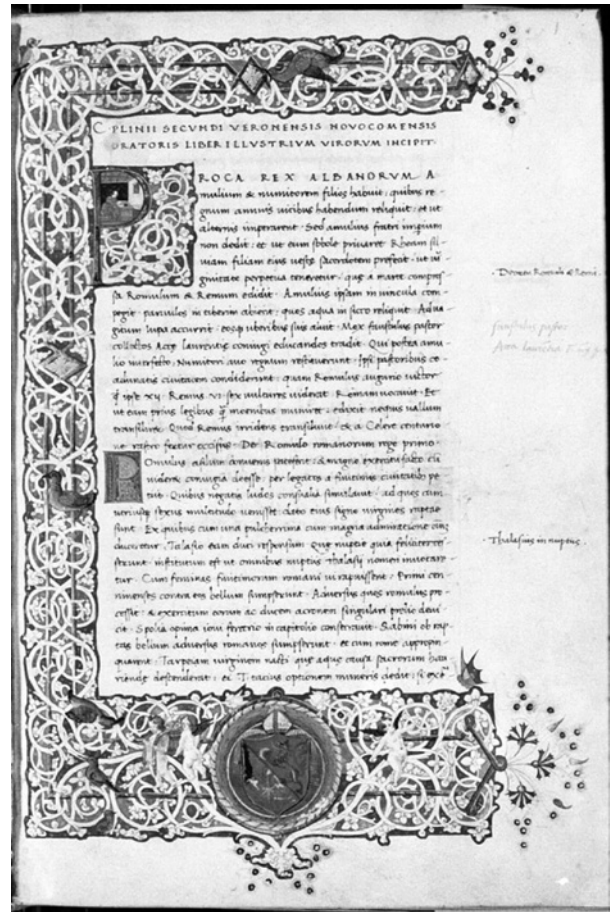 1
C PLINII SECVNDI VERONENSIS NOVOCOMENSIS
ORATORIS LIBER ILLVSTRIVM VIRORVM INCIPIT
PROCA REX ALBANORVM A
mulium & numitorem filios habuit: quibus re
gnum annuis uicibus habendum reliquit: et ut
alternis imperarent. Sed amulius fratri imperium
non dedit: et ut eum sobole priuaret Rheam sil
uiam filiam eius uestæ sacerdotem prefecit: ut
perpetua teneretur: que a marte compres
sa Romulum & Remum edidit. Amulius ipsam in uincula con
pegit: paruulos in tiberim abiecit: quos aqua in sicco reliquit. Ad ua
gitum lupa accurrit: eosque uberibus suis aluit. Mox faustulus pastor
collectos Accæ laurentiæ coniugi educandos tradit. Qui postea amu
lio interfecto: Numitori auo regnum restituerunt. Ipsi pastoribus
adunatis ciuitatem condiderunt: quam Romulus augurio uictor
ipse XII Remus VI uultures uiderat Romam uocauit. Et
ut eam prius legibus muniret: edixit nequis uallum
transiliret. Quod Remus irridens transiluit: & a Celere centurio
ne rastro fertur occisus. De Romulo romanorum rege primo
Romulus asilum conuenis & magno exercitu facto cum
uideret coniugia deesse: per legatos a finitimis ciuitatibus pe
tiit. Quibus negatis ludos consualia simulauit: ad quos cum
utriusque sexus multitudo uenisset: dato suis signo uirgines raptæ
sunt. Ex quibus cum una pulcherrima cum magna admiratione
duceretur: Talasio eam duci responsum. Que nuptiæ quia feliciter ces
serunt: institutum est ut omnibus nuptiis Thalasii nomen
tur. Cum feminas finitimorum romani ui rapuissent. Primi ceni
nenses contra eos bellum sumpserunt. Aduersus quos romulus pro
cessit: & exercitum eorum ac ducem acronem singulari prelio deui
cit. Spolia opima ioui feretrio in capitolio consecrauit. Sabini ob rap
tas bellum aduersus romanos sumpserunt. et cum romæ appropin
quarent: Tarpeiam uirginem nacti que aquæ causa sacrorum hau
riendæ descenderat: ei T. tacius optionem muneris dedit: si
Romuli & Remi.
faustulus pastor
Acca laurentia
Thalasius in nuptiis.